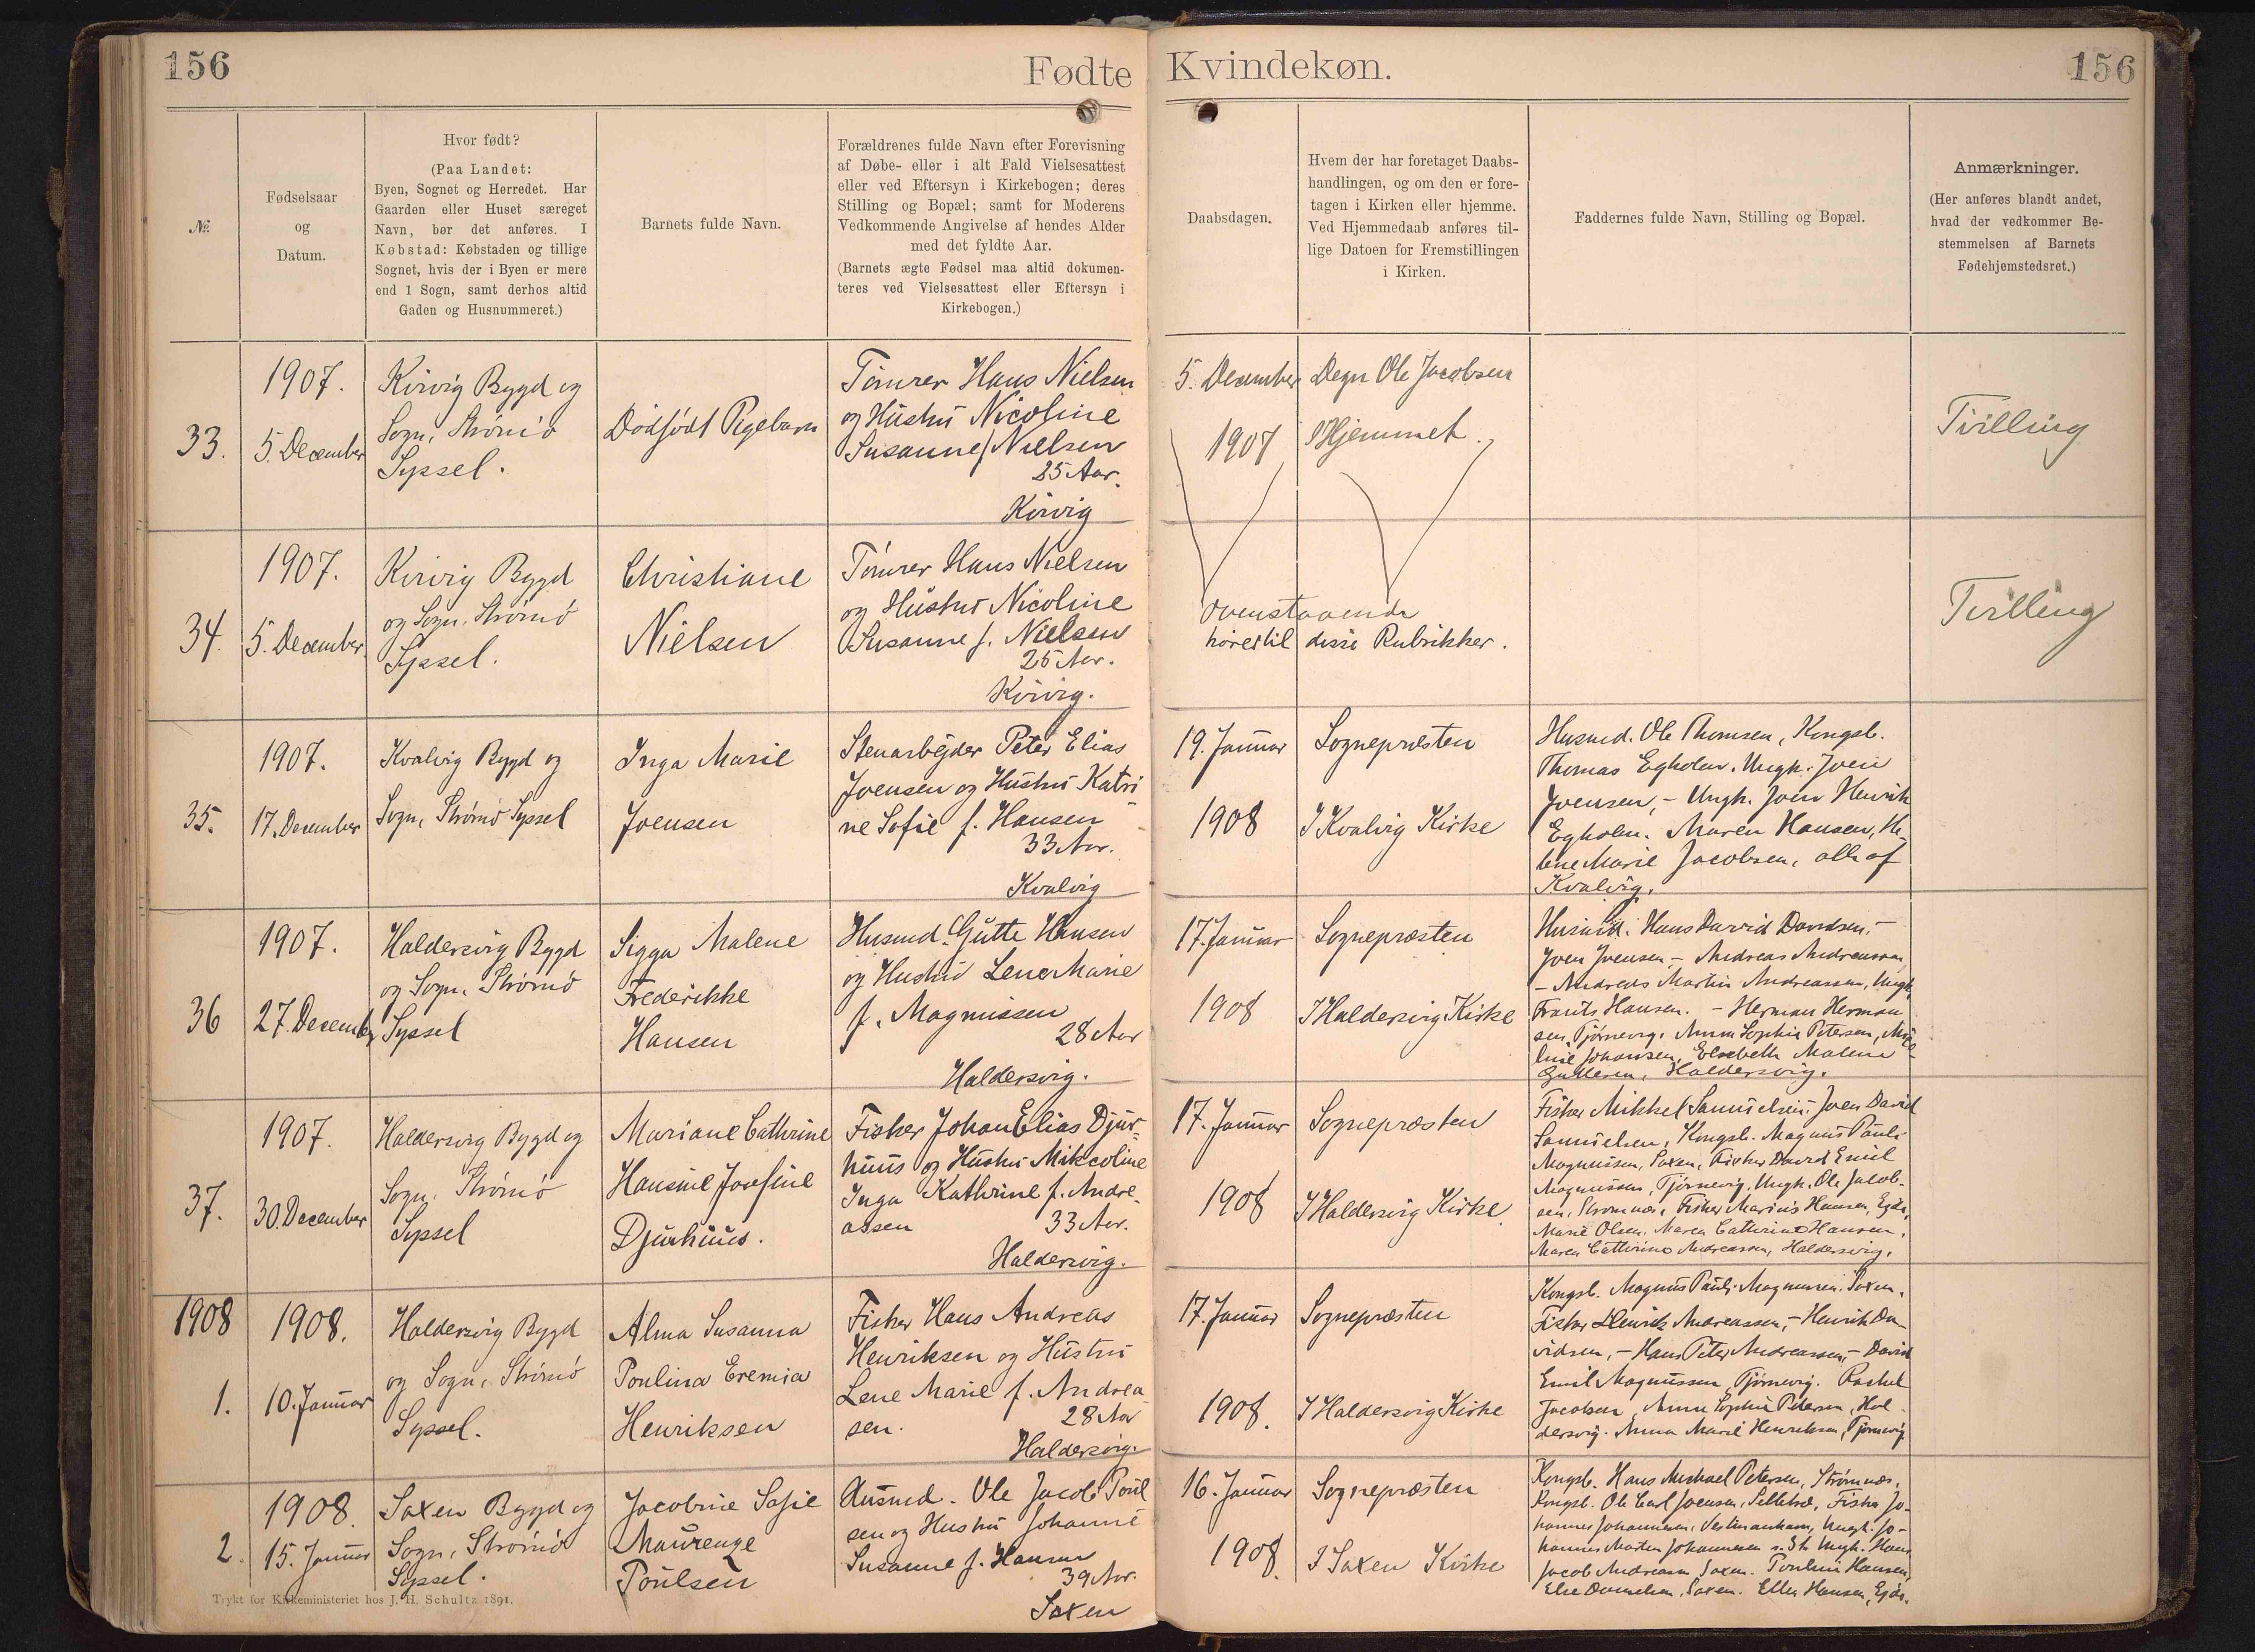 156
Fødte
Kvindekøn.
156
№
Fødselsaar
og
Datum.
Hvor født?
(Paa Landet:
Byen, Sognet og Herredet. Har
Gaarden eller Huset særeget
Navn, bør det anføres. I
Købstad: Købstaden og tillige
Sognet, hvis der i Byen er mere
end 1 Sogn, samt derhos altid
Gaden og Husnummeret.)
Barnets fulde Navn.
Forældrenes fulde Navn efter Forevisning
af Døbe- eller i alt Fald Vielsesattest
eller ved Eftersyn i Kirkebogen; deres
Stilling og Bopæl; samt for Moderens
Vedkommende Angivelse af hendes Alder
med det fyldte Aar.
(Barnets ægte Fødsel maa altid dokumen-
teres ved Vielsesattest eller Eftersyn i
Kirkebogen.)
Daabsdagen.
Hvem der har foretaget Daabs-
handlingen, og om den er fore-
tagen i Kirken eller hjemme.
Ved Hjemmedaab anføres til-
lige Datoen for Fremstillingen
i Kirken.
Faddernes fulde Navn, Stilling og Bopæl.
Anmærkninger.
(Her anføres blandt andet,
hvad der vedkommer Be-
stemmelsen af Barnets
Fødehjemstedsret.)
33.
1907.
5. December
Kvivig Bygd og
Sogn, Strømø
Syssel.
Dødfødt Pigebarn
Tømrer Hans Nielsen
og Hustru Nicoline
Susanne f. Nielsen
25 Aar.
Kvivig
5. December
1907
Degn Ole Jacobsen
I Hjemmet.
Tvilling
34.
1907.
5. December
Kvivig Bygd
og Sogn, Strømø
Syssel.
Christiane
Nielsen
Tømrer Hans Nielsen
og Hustru Nicoline
Susanne f. Nielsen
25 Aar.
Kvivig.
Ovenstaaende
hører til disse Rubrikker.
Tvilling
35.
1907.
17. December
Kvalvig Bygd og
Sogn, Strømø Syssel
Inga Marie
Joensen
Stenarbejder Peter Elias
Joensen og Hustru Katri
ne Sofie f. Hansen
33 Aar.
Kvalvig
19. Januar
1908
Sognepræsten
I Kvalvig Kirke
Husmd. Ole Thomsen, Kongsb.
Thomas Egholm. Ungk. Joen
Joensen, - Ungk. Joen Henrik
Egholm. Maren Hansen, He-
lene Marie Jacobsen, alle af
Kvalvig.
36
1907.
27. December
Haldersvig Bygd
og Sogn, Strømø
Syssel
Sigga Malene
Frederikke
Hansen
Husmd. Gutte Hansen
og Hustru Lene Marie
f. Magnussen
28 Aar
Haldersvig.
17. Januar
1908
Sognepræsten
I Haldersvig Kirke
Husmd. Hans David Davidsen, -
Joen Joensen, - Andreas Andreassen,
- Andreas Martin Andreassen, Ungk.
Frants Hansen. - Herman Herman
sen, Tjørnevig. Anna Sophie Petersen,
Johansen, Elsebeth Malene
Haldersvig.
37.
1907.
30. December
Haldersvig Bygd og
Sogn, Strømø
Syssel
Mariane Cathrine
Hansine Josefine
Djurhuus.
Fisker Johan Elias Djur-
huus og Hustru Mikkoline
Inga Kathrine f. Andre-
assen 33 Aar.
Haldersvig.
17. Januar
1908
Sognepræsten
I Haldersvig Kirke
Fisker Mikkel Samuelsen, Joen David
Samuelsen, Kongsb. Magnus Pauli
Magnussen, Saxen, Fisker David Emil
Magnussen, Tjørnevig, Ungk. Ole Jacob-
sen, Strømnæs, Fisker Marius Hansen, Ejde,
Marie Olsen. Maren Cathrine Hansen.
Maren Cathrine Andreassen, Haldersvig.
1908
1.
1908.
10. Januar
Haldersvig Bygd
og Sogn, Strømø
Syssel.
Alma Susanna
Poulina Eremia
Henriksen
Fisker Hans Andreas
Henriksen og Hustru
Lene Marie f. Andrea
sen. 28 Aar
Haldersvig.
17. Januar
1908.
Sognepræsten
I Haldersvig Kirke
Kongsb. Magnus Pauli Magnussen. Saxen.
Fisker Henrik Andreassen, - Henrik Da-
vidsen, - Hans Peter Andreassen, - David
Emil Magnussen, Tjørnevig. Rachel
Jacobsen, Anna Sophie Petersen, Hal-
dersvig. Anna Marie Henriksen, Tjørnevig
2.
1908.
15. Januar
Saxen Bygd og
Sogn, Strømø
Syssel.
Jacobine Sofie
Maurenze
Poulsen
Husmd. Ole Jacob Poul
sen og Hustru Johanne
Susanne f. Hansen
39 Aar.
Saxen
16. Januar
1908.
Sognepræsten
I Saxen Kirke
Kongsb. Hans Michael Petersen, Strømnæs.
Kongsb. Ole Carl Joensen, Fisker Jo-
hannes Johannesen, Vestmanhavn, Ungk. Jo-
hannes Morten Johannesen s. St. Ungk. Hans
Jacob Andreasen Saxen. Pouline Hansen,
Else Danielsen, Saxen. Ellen Hansen, Ejde.
Trykt for Kirkeministeriet hos J. H. Schultz 1891.